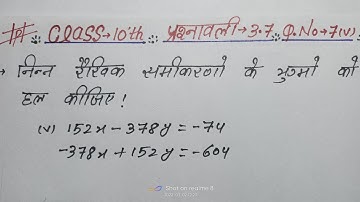 # Class→10th प्रश्नावली→3.7 Q.No→7(v)
→ निम्न रैखिक समीकरणो के युग्मो को
हल कीजिए!
(v) 152x - 378y = -74
-378x + 152y = -604
Shot on realme 8